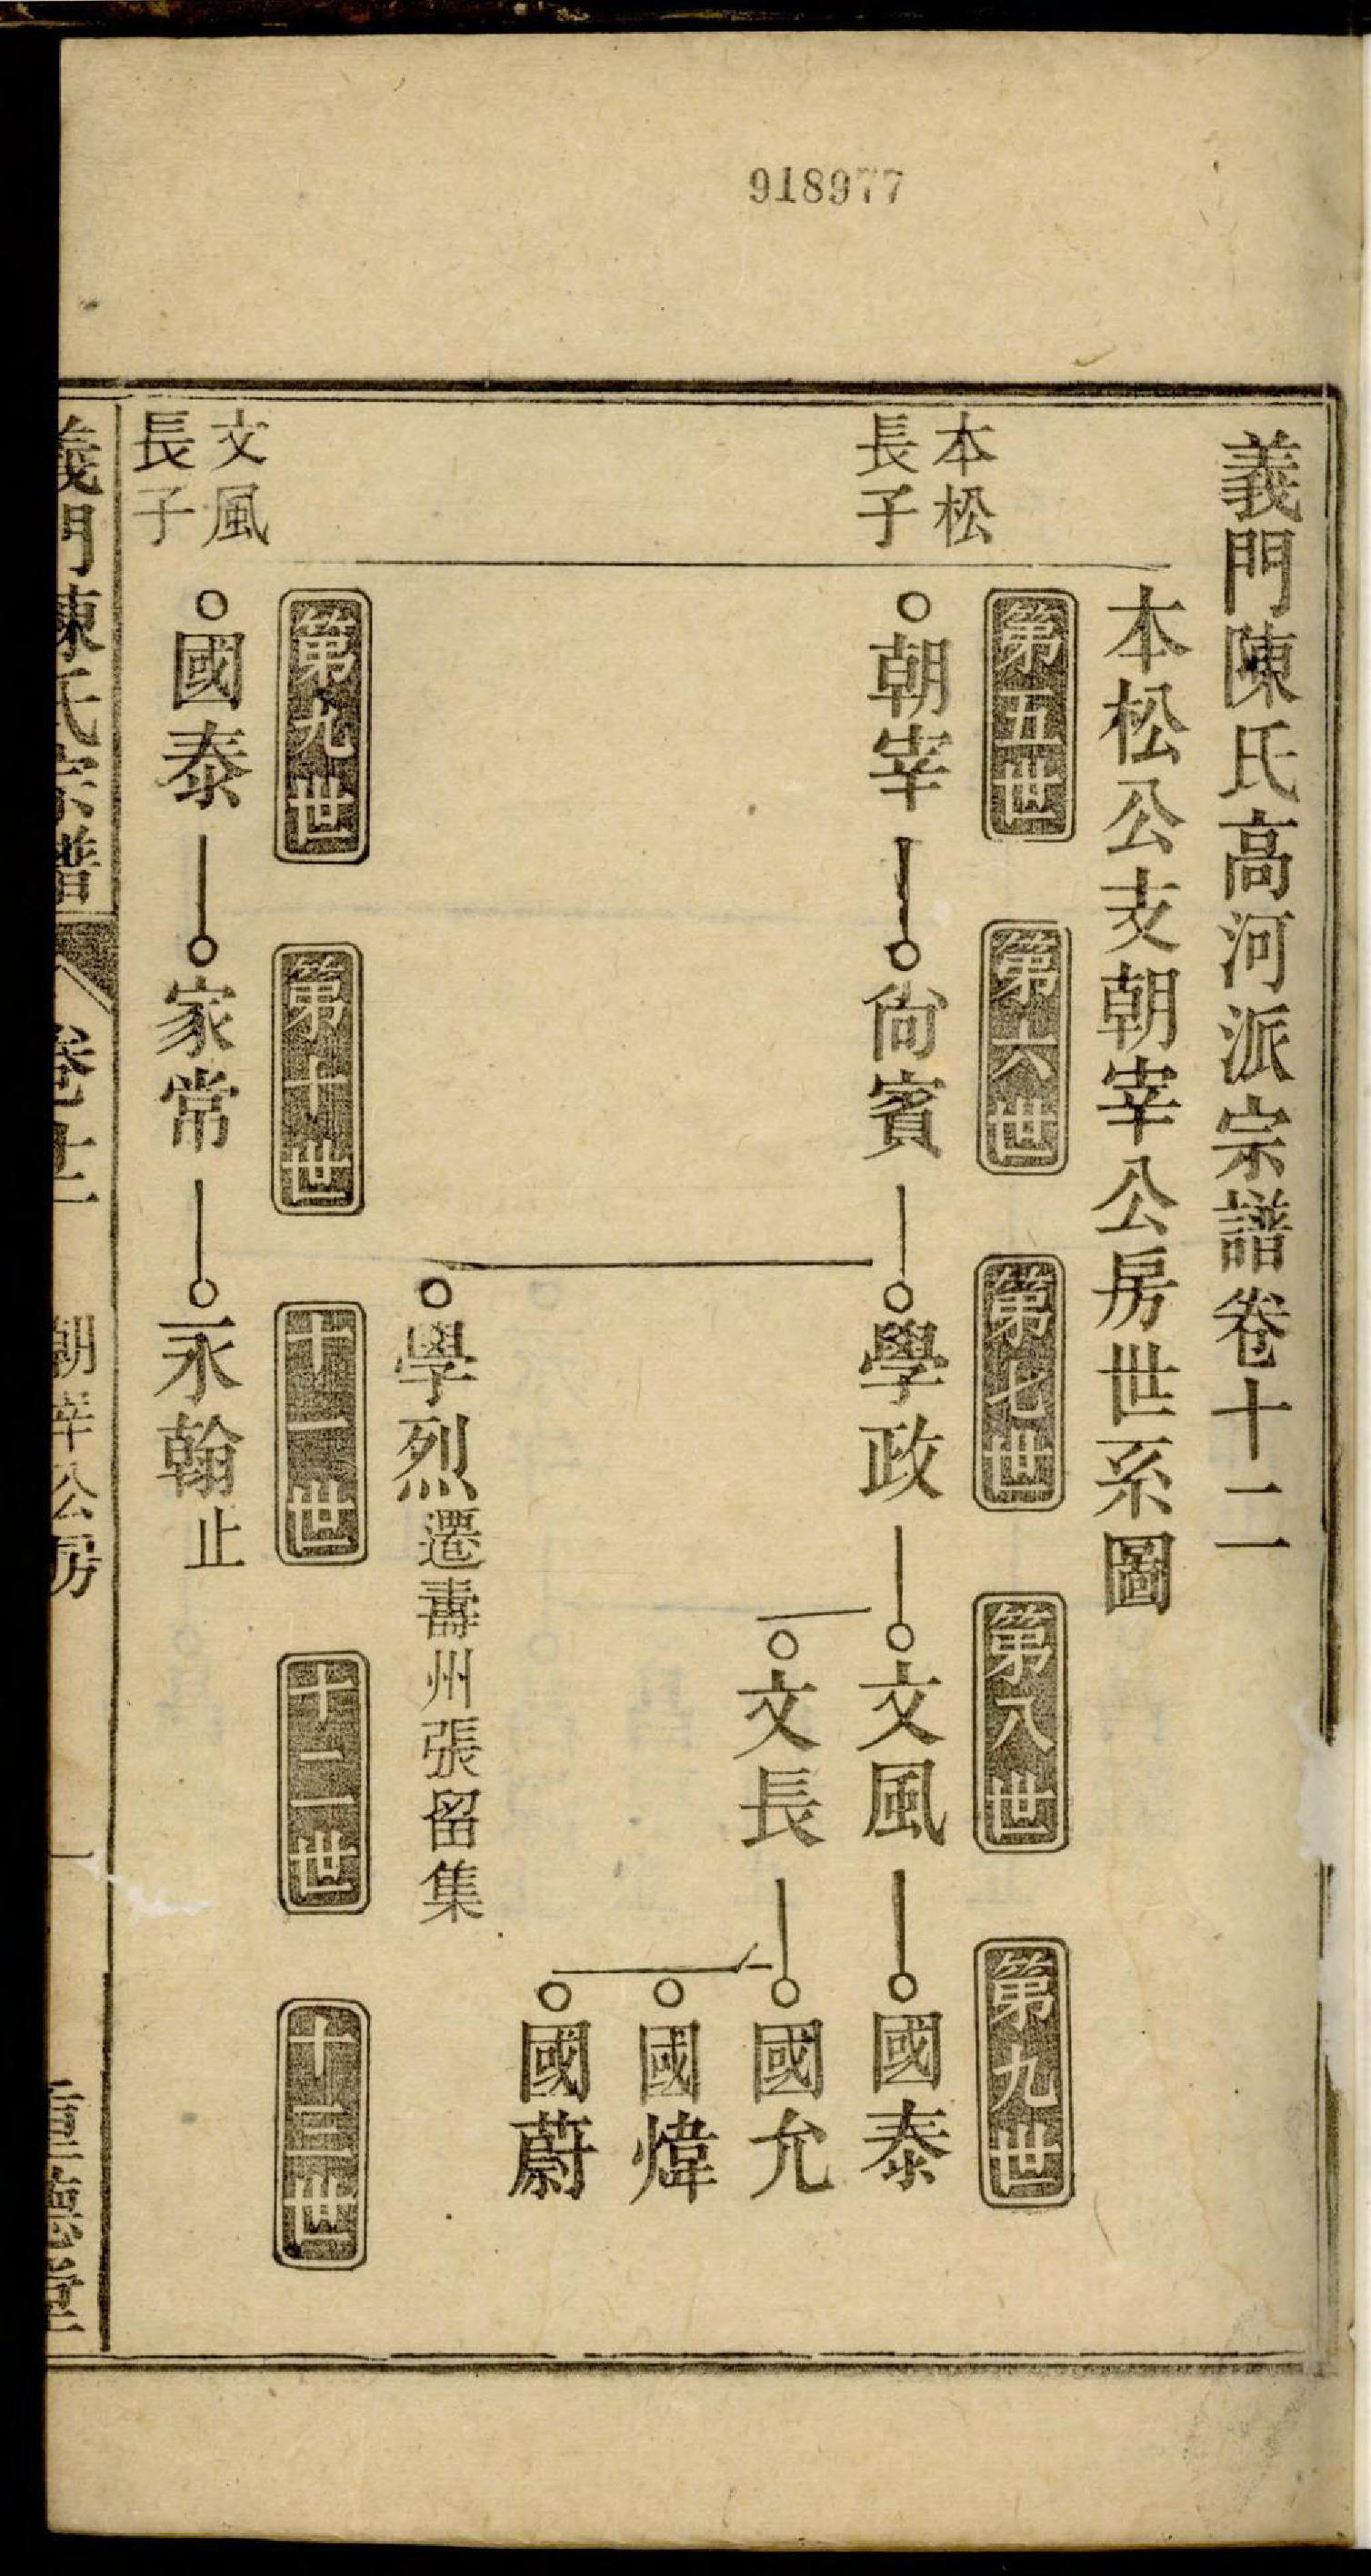 918977
義門陳氏高河派宗譜卷十二
本松公支朝宰公房世系圖
第五世
第六世
第七世
第八世
第九世
本松
長子
朝宰
尙賓
學政
文風
國泰
文長
國允
國煒
國蔚
學烈遷壽州張留集
第九世
第十世
十一世
十二世
十三世
文風
長子
國泰
家常
永翰止
義門陳氏宗譜
卷十二
朝宰公房
一
德堂